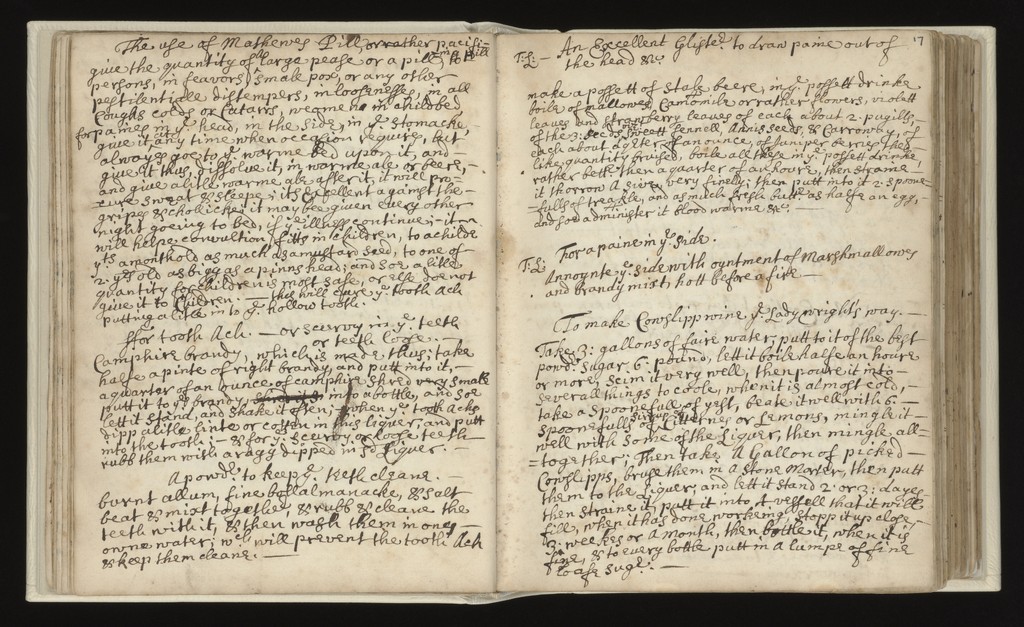 The use of Mathewes Pill, or rather pacifi-
give the quantity of a large pease or a pill to
persons, in feavors, small pox, or any other
pestilentiall distempers, in loosnesses, in all
Coughs colds or Catars, weomen in childbed
for paines in ye head, in the side, in ye stomacke,
give it any time when occation require, but
always goe to ye warme bed upon it, and
give it thus, dissolve it, in warme ale or beere,
and give a litle warme ale after it, it will pro-
cure sweat & sleepe; its Excellent against the
gripes & chollicke; it may be given every other
night goeing to bed, if ye illness continue; it
will helpe convultion fitts in Children, to a childe
yts a month old as much as a mustard seed; to one of
2: yrs old as bigg as a pinns head; and soe a litle
quantity for Children is most safe, or else doe not
give it to Children: — this will cure ye tooth Ach
putting a litle in to ye hollow tooth.
ffor tooth Ach. — or scurvy in ye teeth
or teeth loose. —
Camphire brandy, which is made thus; take
halfe a pinte of right brandy, and putt into it,
a quarter of an ounce of camphire shred very small
putt it to ye brandy, into a bottle, and soe
lett it stand, and shake it often; when ye tooth Achs
dipp a litle linte or cotton in this liquer, and putt
into the tooth; — & for ye scurvy, or loose teeth —
rubb them with a ragg dipped in sd Liquer. —
A powdr to keep ye teeth cleane.
burnt allum, fine boll almanacke, & salt
beat & mixt together, & rubb & cleane the
teeth with it, & then wash them in ones
owne water; wch will prevent the tooth Ach
& keep them cleane. —
17
T:S: — An Excellent Glister to draw paine out of
the head &c
make a possett of stale beere, in ye possett drinke
boile of mallowes, Camomile or rather flowers, violett
leaves and strawberry leaves of each about 2: pugills,
of the 3: seeds sweet fennell, Anniseeds, & Carroway, of
each about a qter of an ounce, of juniper berries the
like quantity brused, boile all these in ye possett drinke
rather better then a quarter of an houre, then straine
it thorrow A sive, very finely; then putt into it 2: spoone=
=fulls of treakle, and as much fresh buttr as halfe an egg,
and soe administer it blood warme &c —
T:S: For a paine in ye side.
Annoynte ye side with oyntment of Marshmallowes
and brandy mixt, hott before a fire —
To make Cowslipp wine ye Lady wrights way. —
Take 3: gallons of faire water; putt to it of the best
powdr sugar 6: pound, lett it boile halfe an houre
or more, scim it very well, then poure it into
severall things to coole, when it is almost cold,
take a spoonefull of yest, beate it well with 6
spoonefulls sirrup of Citterns or Lemons, mingle it
well with some of the Liquer, then mingle all
=together; Then take A Gallon of picked
Cowslipps, bruse them in a stone Morter, then putt
them to the liquer, and lett it stand 2: or 3: dayes
then straine it, putt it into A vessell that it will
fill, when it has done workeing, stopp it up close
3: weekes or A month, then bottle it, when it is
fine, & to every bottle putt in a lumpe of fine
loafe sugr. —